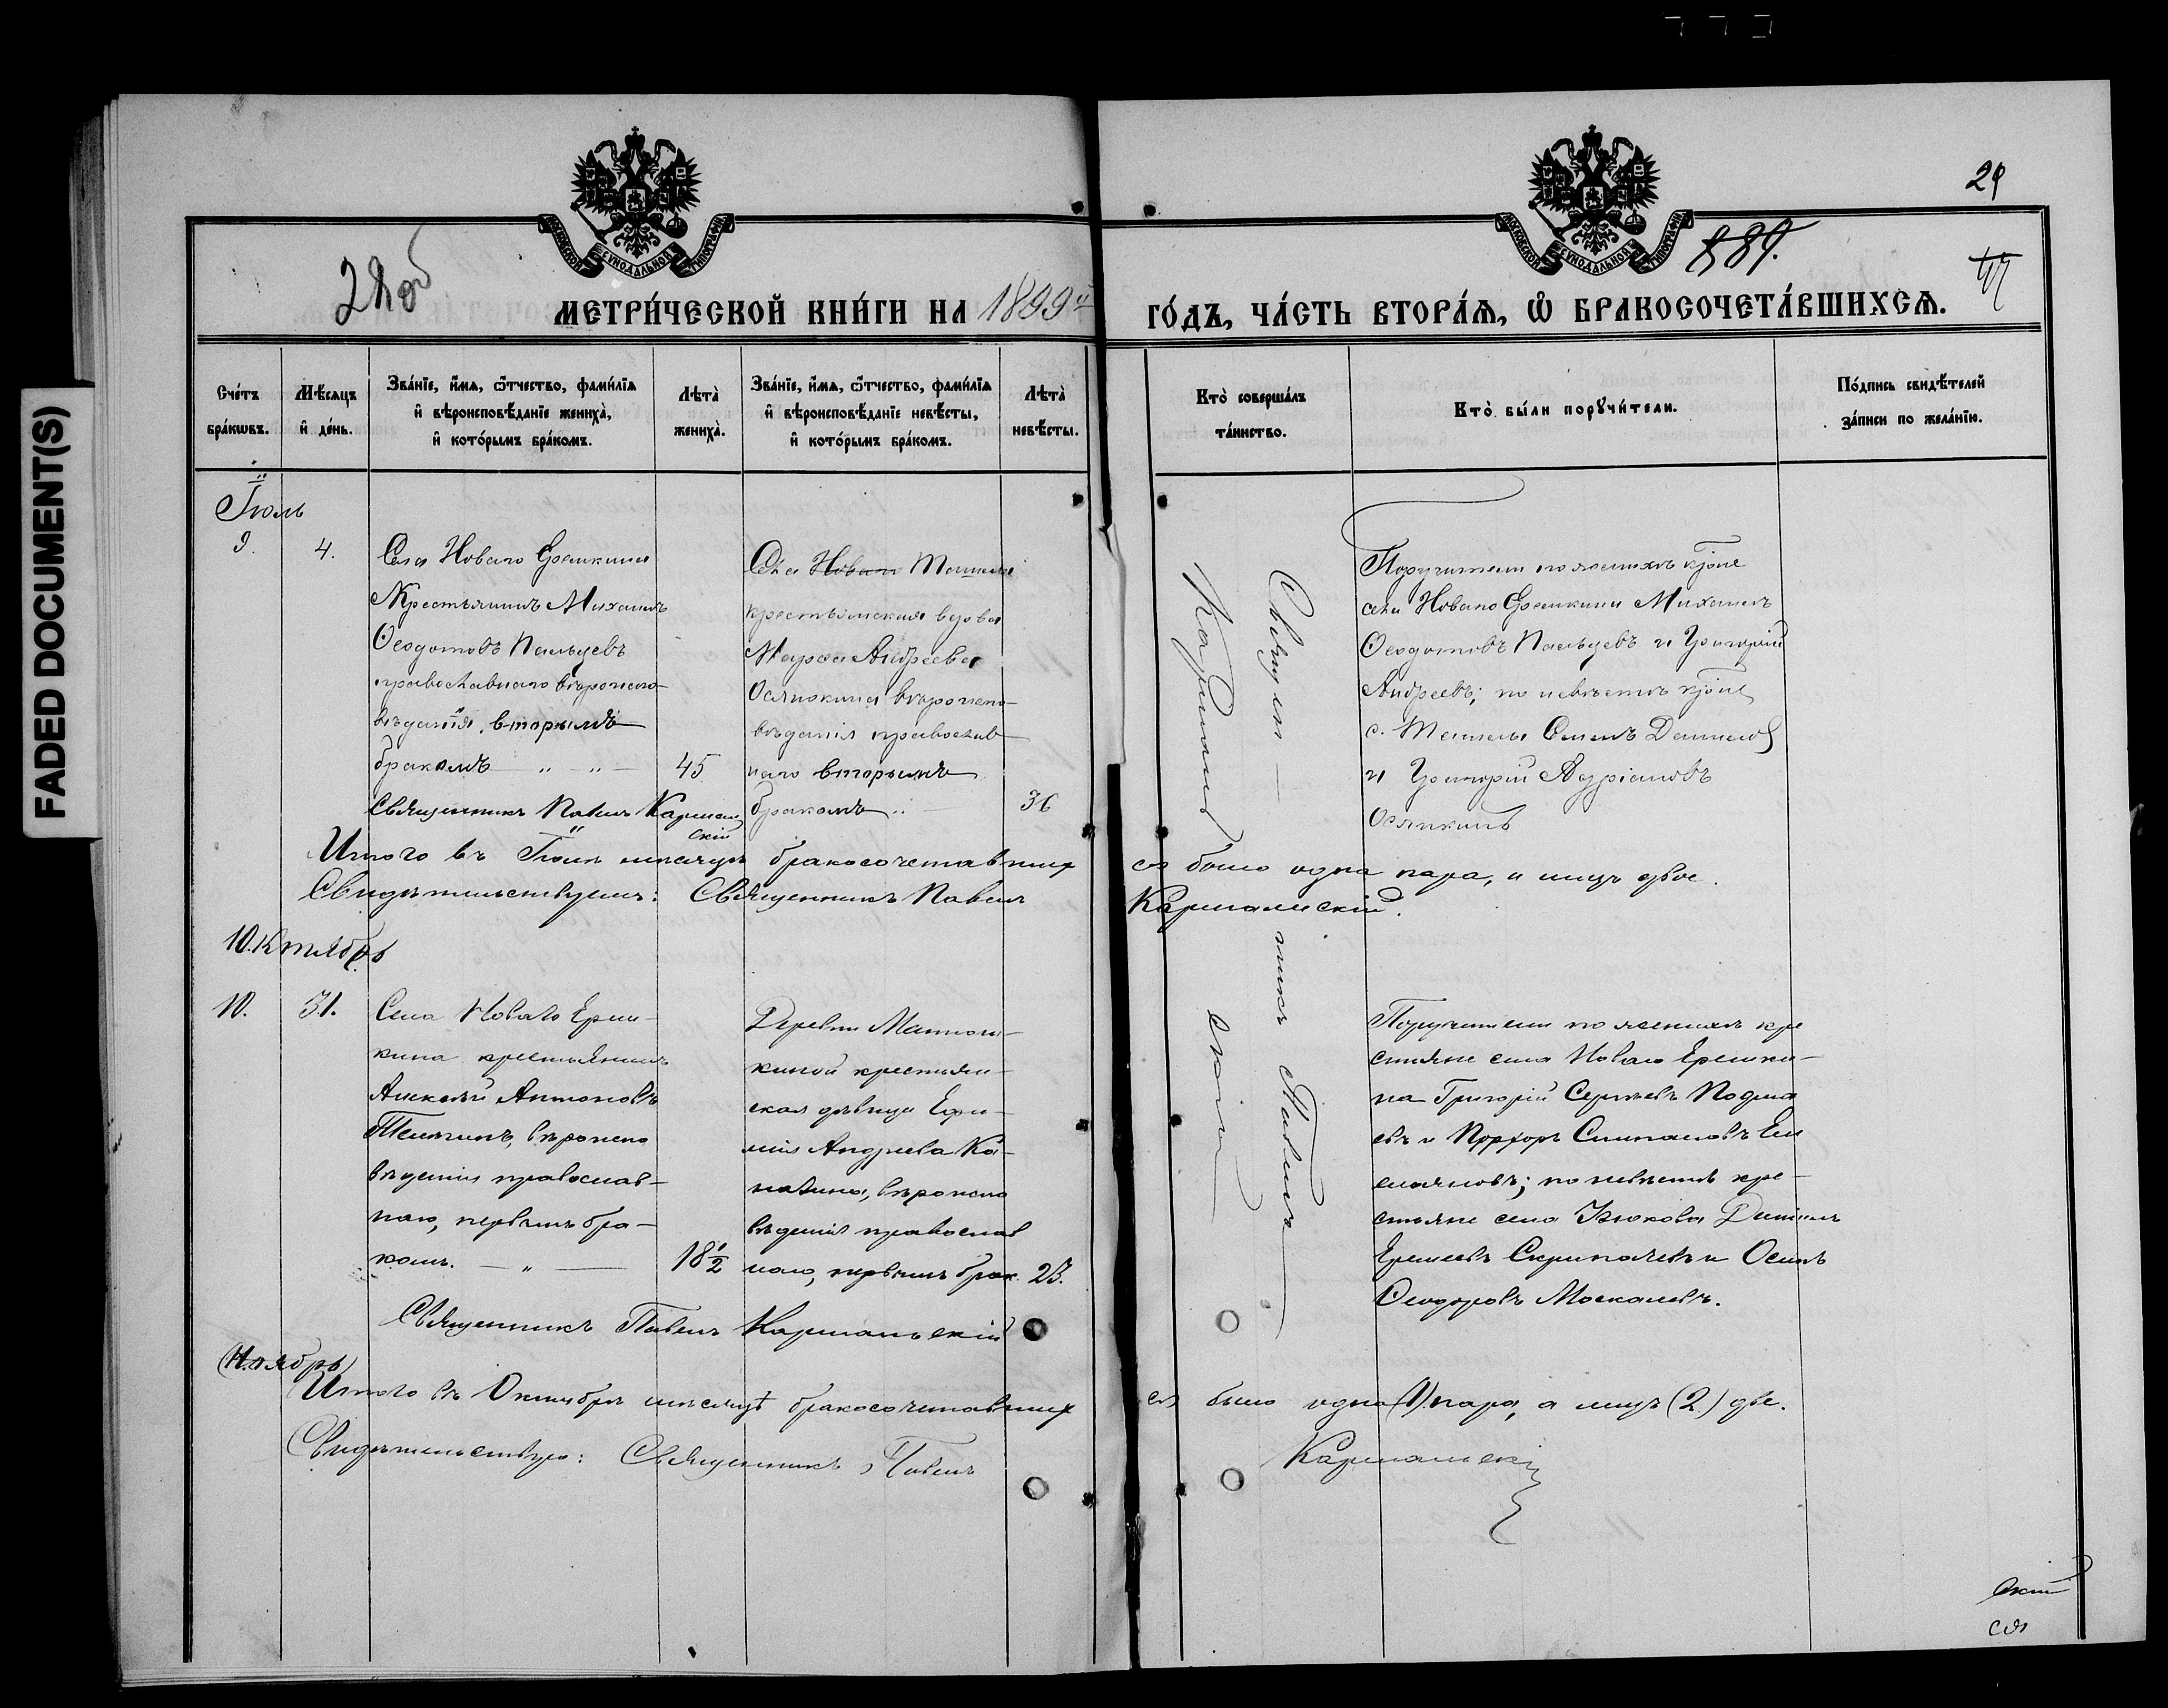 FADED DOCUMENT(S)
МОСКОВСКОЙ СѴНОДАЛЬНОЙ ТИПОГРАФІИ
МОСКОВСКОЙ СѴНОДАЛЬНОЙ ТИПОГРАФІИ
29
889.
28об
МЕТРИ́ЧЕСКОЙ КНИ́ГИ НА 1899й
ГО́ДЪ, ЧА́СТЬ ВТОРА́Ѧ, Ѡ҆ БРАКОСОЧЕТА́ВШИХСѦ.
Сче́тъ
бра́кѡвъ.
Мѣ́сѧцъ
и҆ де́нь.
Зва́нїе, и҆́мѧ, ѻ҆́тчество, фами́лїѧ
и҆ вѣроисповѣ́данїе жениха̀,
и҆ кото́рымъ бра́комъ.
Лѣта̀
жениха̀.
Зва́нїе, и҆́мѧ, ѻ҆́тчество, фами́лїѧ
и҆ вѣроисповѣ́данїе невѣ́сты,
и҆ кото́рымъ бра́комъ.
Лѣта̀
невѣ́сты.
Кто̀ соверша́лъ
та́инство.
Кто̀ бы́ли порꙋчи́тели.
По́дпись свидѣ́телей
за́писи по жела́нїю.
Іюль
9. 4.
Села Новаго Еремкина
Крестьянинъ Михаилъ
Ѳеодотовъ Пальцевъ
православнаго вѣроиспо-
вѣданія, вторымъ
бракомъ 45
Священникъ Павелъ Кармаль
скій
Села Новаго Ташелы
крестьянская вдова
Мавра Андреева
Осяпкина вѣроиспо-
вѣданія православ-
наго вторымъ
бракомъ 36
Священ
никъ Павелъ
Кармаль
скій
Поручители по женихѣ кр-не
села Новаго Еремкина Михаилъ
Ѳеодотовъ Пальцевъ и Григорій
Андреевъ; по невѣстѣ кр-не
с. Ташелы Семенъ Даниловъ
и Григорій Адріановъ
Осяпкинъ
Итого въ Іюлѣ мѣсяцѣ бракосочетавших
ся было одна пара, и лицъ двое.
Свидѣтельствуемъ: Священникъ Павелъ
Кармальскій.
Октябрь
10. 31.
Села Новаго Ерем-
кина крестьянинъ
Алексѣй Антоновъ
вѣроиспо
вѣданія православ-
наго, первымъ бра-
комъ. 18½
Деревни
киной крестьян-
ская дѣвица Ефи-
мія Андреева Ка-
вѣроиспо
вѣданія православ
наго, первымъ брак. 23.
Поручители по женихѣ кре
стьяне села Новаго Еремки-
на Григорій Сергѣевъ
евъ и Степановъ Ем
ельяновъ; по невѣстѣ кре-
стьяне села
и Осипъ
Ѳеодоровъ Москалевъ.
Священникъ Павелъ Кармальскій
(Ноябрь)
Итого въ Октябрѣ мѣсяцѣ бракосочетавших
ся было одна (1) пара, а лицъ (2.) две.
Свидѣтельствую: Священникъ Павелъ
Кармальскій
скій
ся